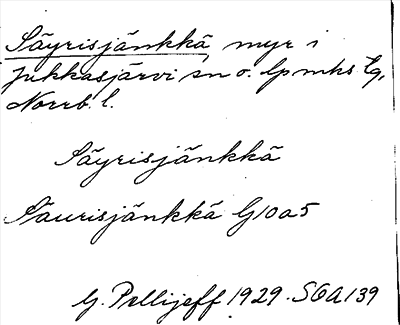 Säyrisjänkkä, myr i
Jukkasjärvi sn o. lpmhs tg,
Norrb. l.
Säyrisjänkkä
Säurisjänkkä G10a5
G. Pellijeff 1929. SOA 139